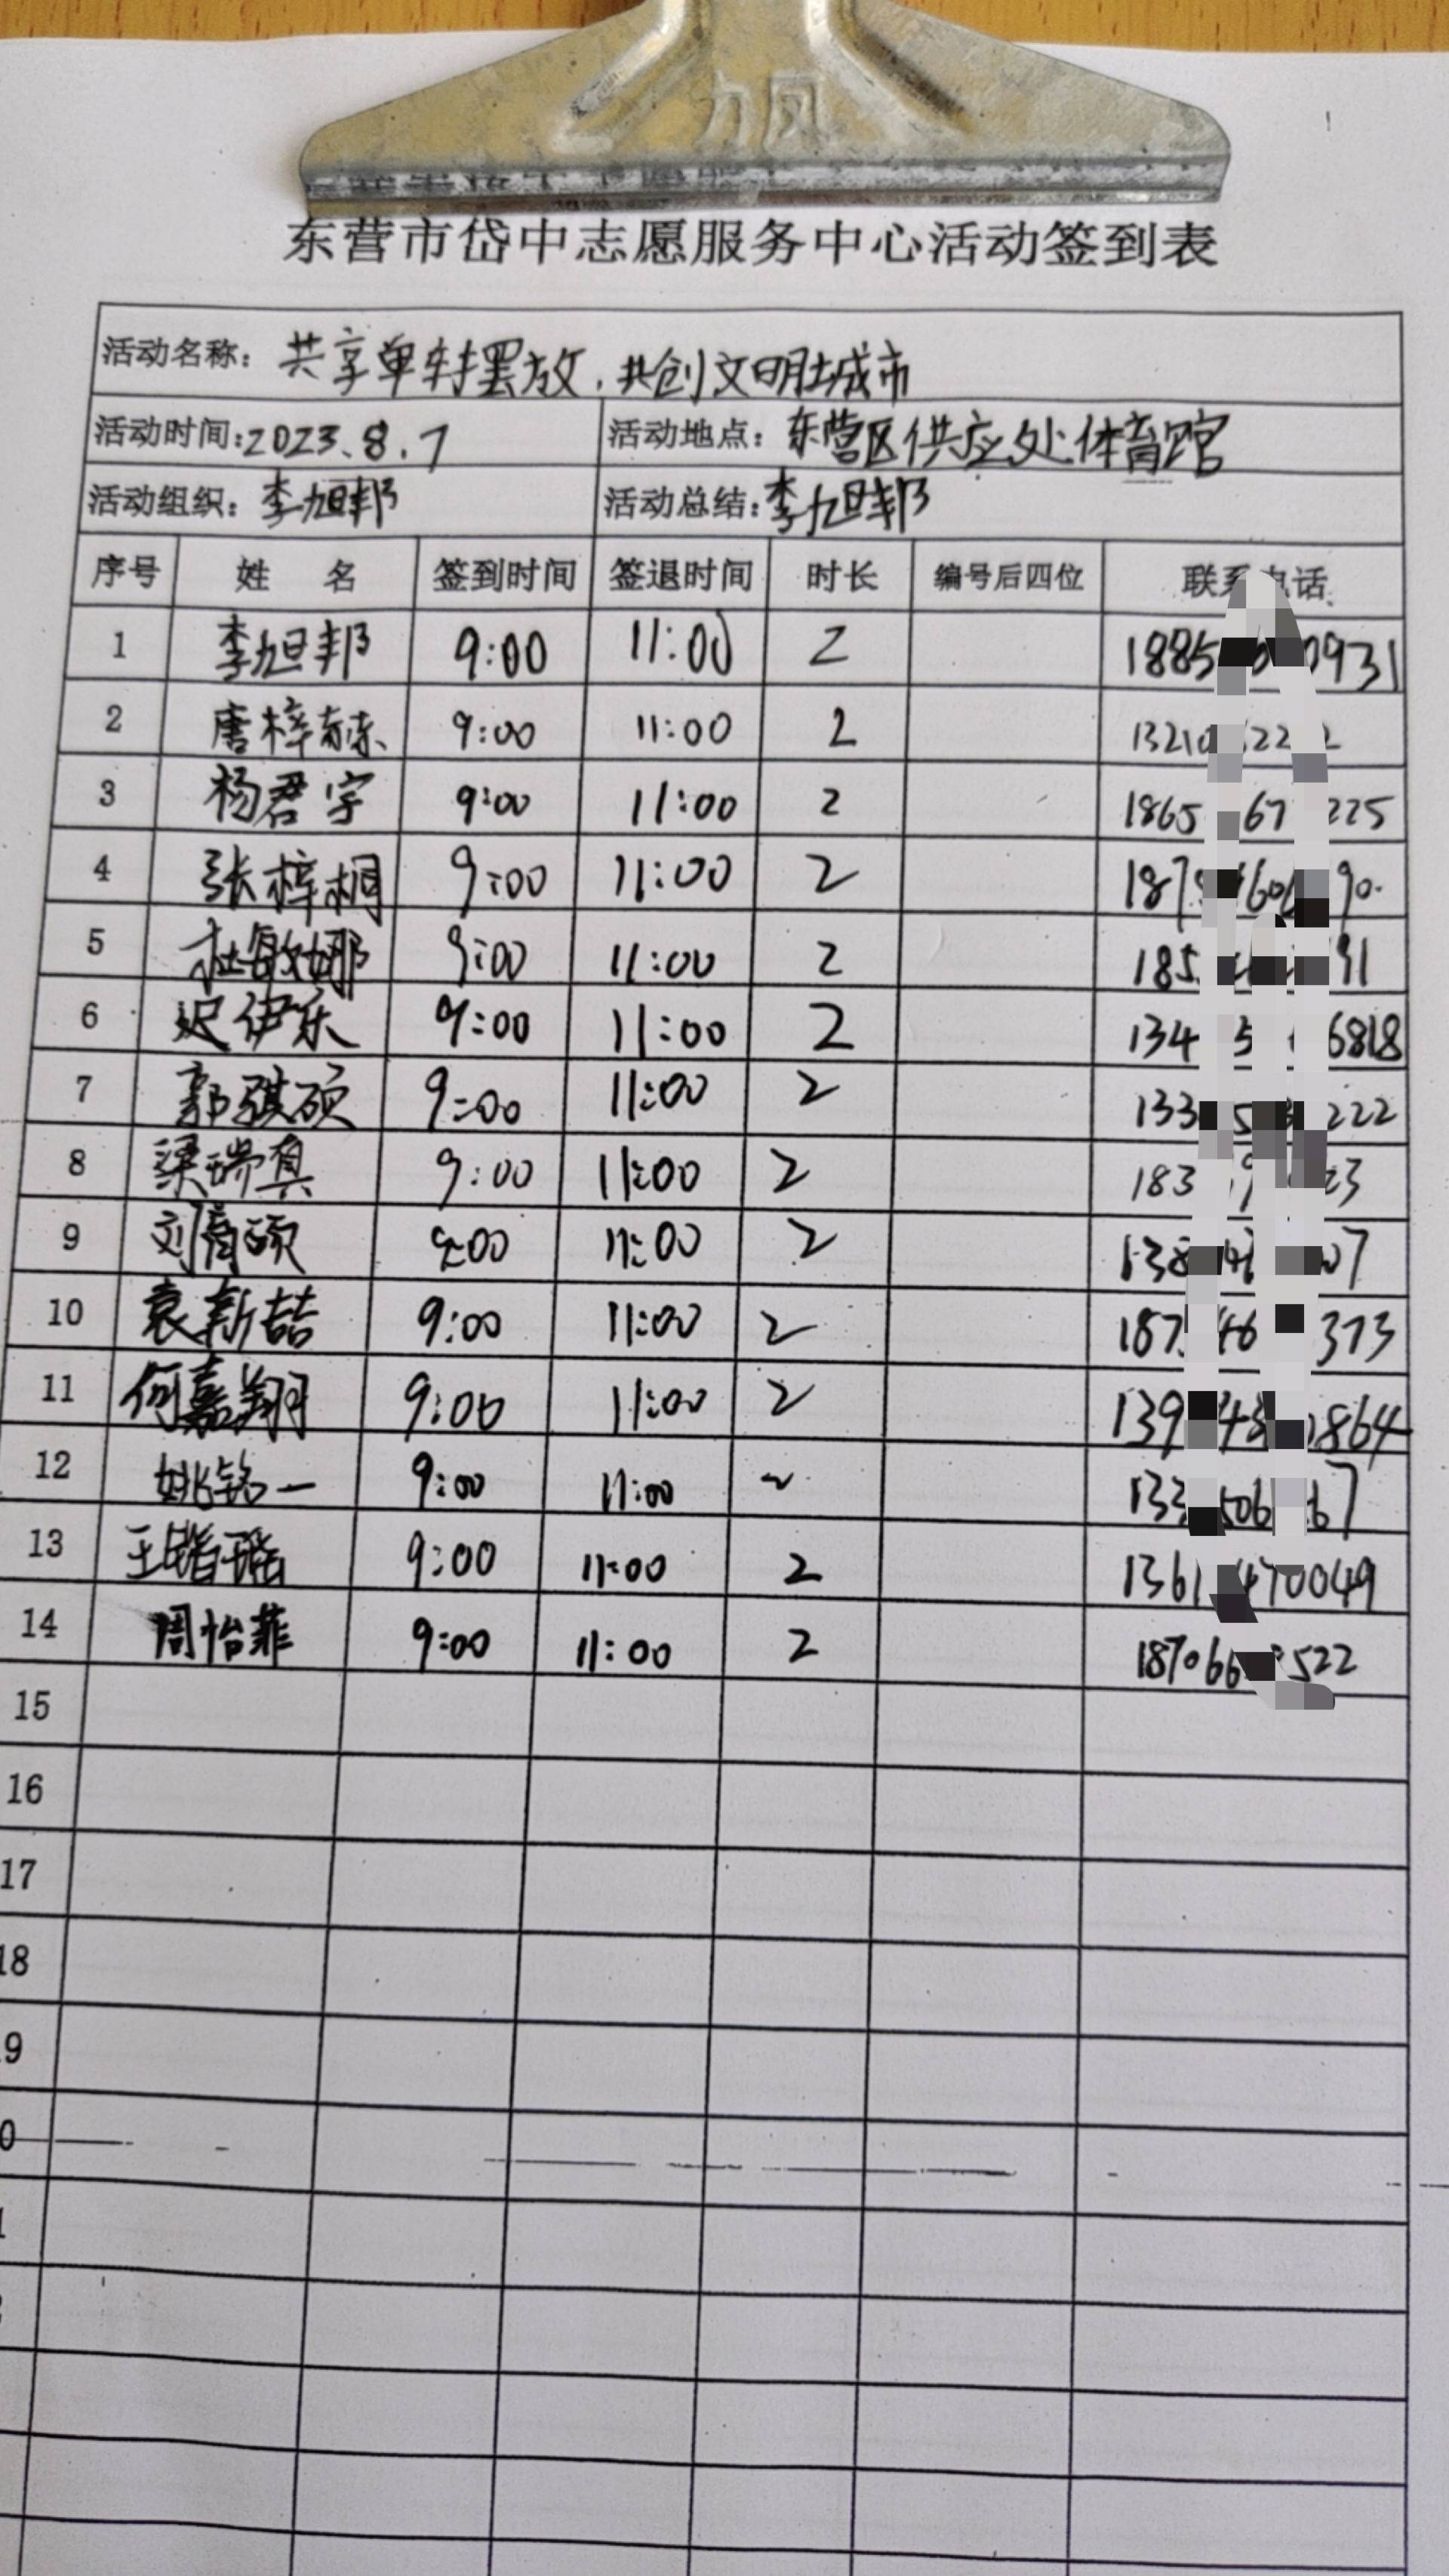 东营市岱中志愿服务中心活动签到表
活动名称: 共享单车摆放,共创文明城市
活动时间:2023.8.7 活动地点: 东营区供应处体育馆
活动组织: 李旭邦 活动总结: 李旭邦
序号 姓 名 签到时间 签退时间 时长 编号后四位 联系电话
1 李旭邦 9:00 11:00 2 1885 0931
2 唐梓赫 9:00 11:00 2 1321
3 杨君宇 9:00 11:00 2 1865 67 225
4 张梓桐 9:00 11:00 2 187 90
5 杜敏娜 9:00 11:00 2 185 91
6 迟伊乐 9:00 11:00 2 134 5 6818
7 郭骐硕 9:00 11:00 2 133 5 222
8 梁瑞真 9:00 11:00 2 183 23
9 刘育硕 9:00 11:00 2 138 07
10 袁新喆 9:00 11:00 2 187 46 373
11 何嘉翔 9:00 11:00 2 139 864
12 姚铭一 9:00 11:00 2 133 506 67
13 王 瑶 9:00 11:00 2 1361 470049
14 周怡菲 9:00 11:00 2 187066 522
15
16
17
18